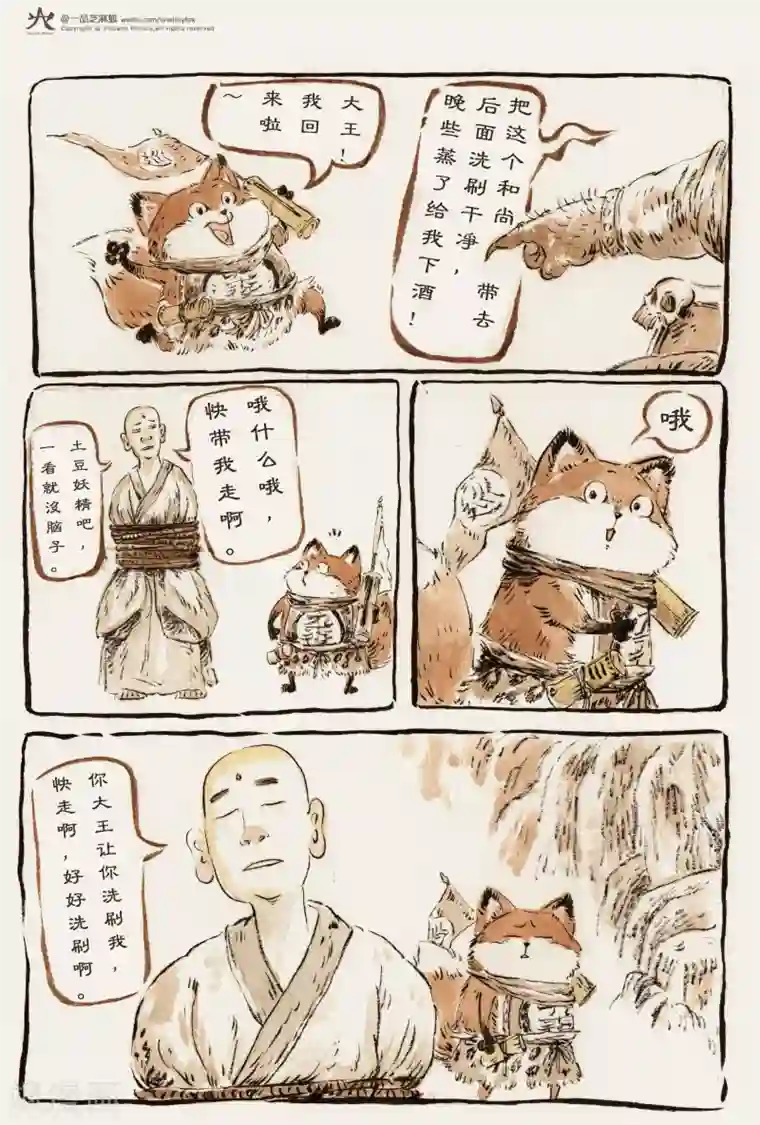 @一品芝麻狐
大王！
我回
来啦
～
把这个和尚
后面洗刷干净，带去
晚些蒸了给我下酒！
哦什么哦，
快带我走啊。
土豆妖精吧，
一看就沒脑子。
哦
你大王让你洗刷我，
快走啊，好好洗刷啊。